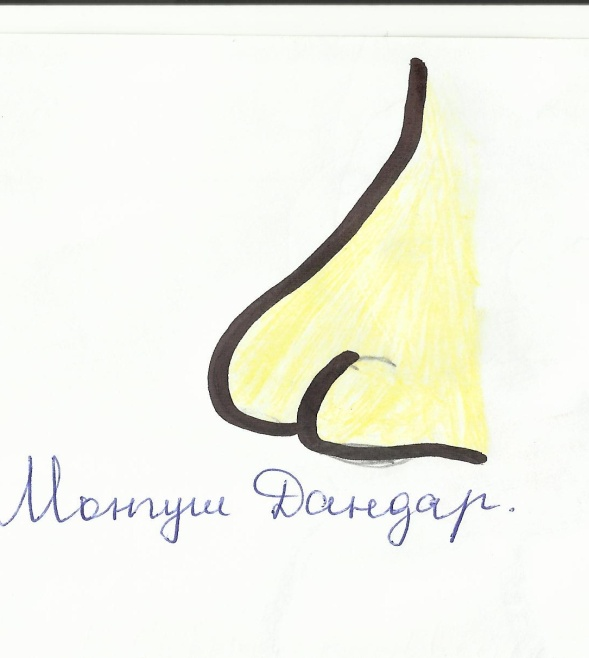 Монгуш Дандар.